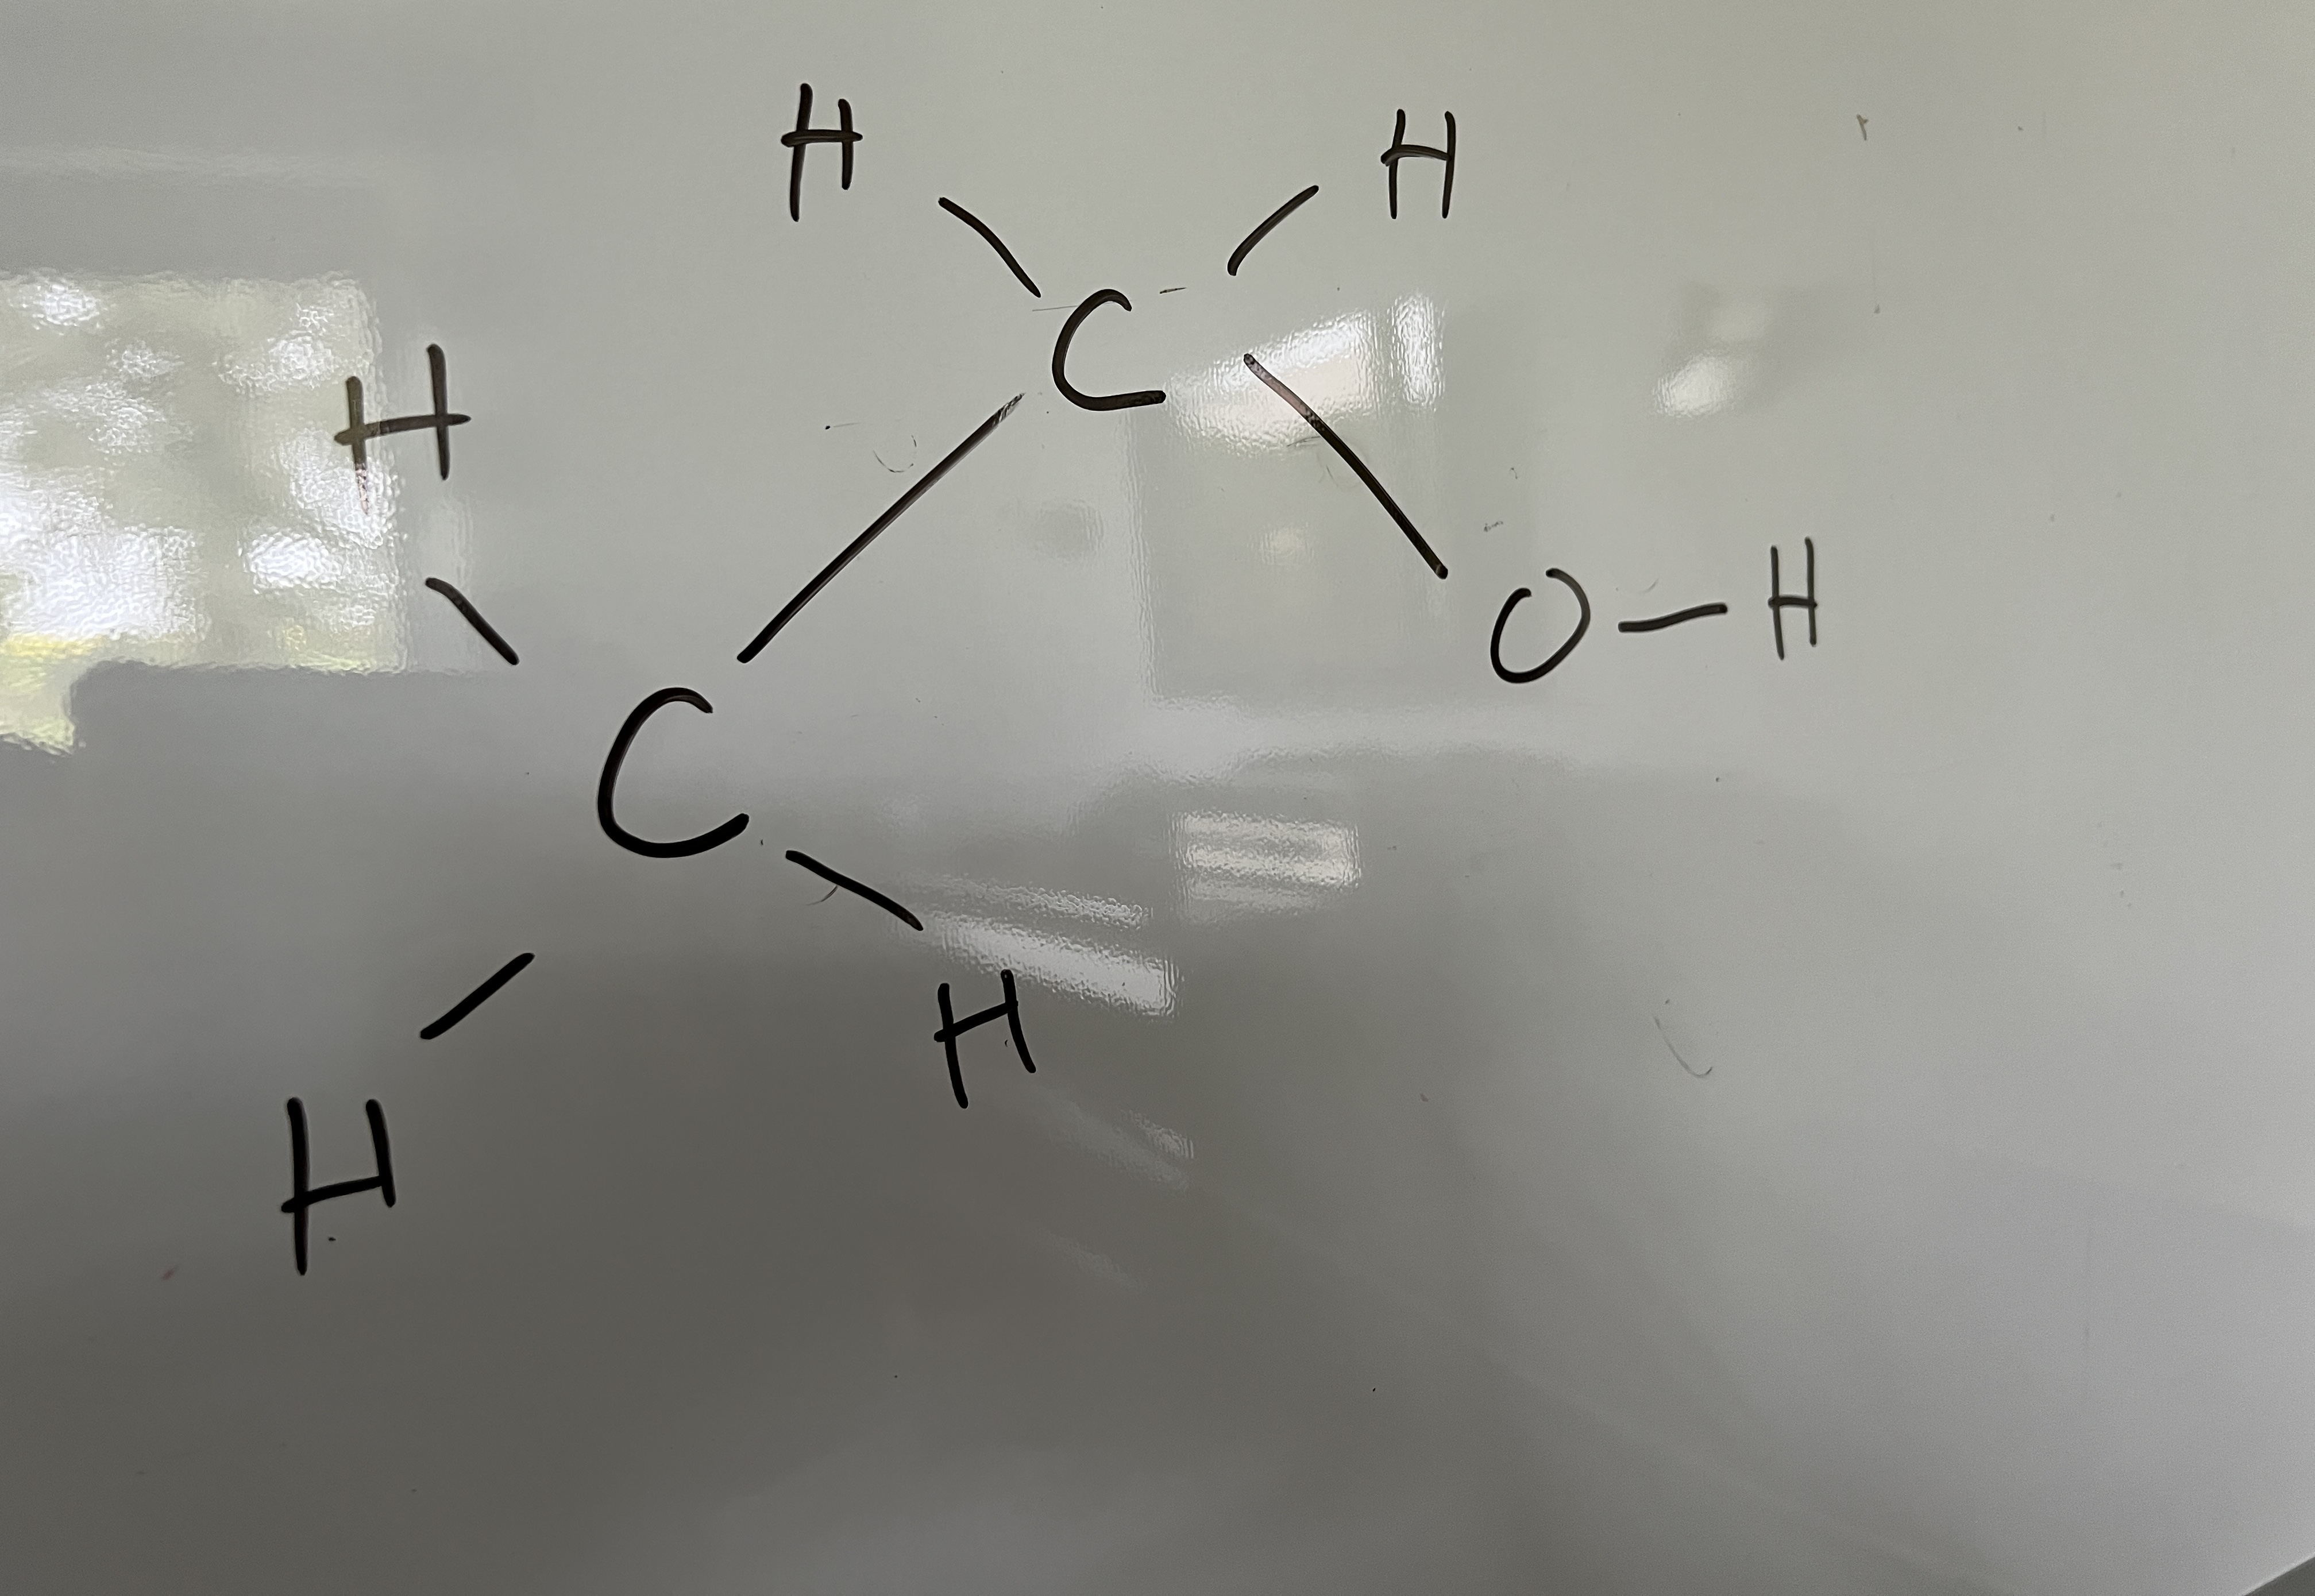 H H
C
H
O-H
C
H
H